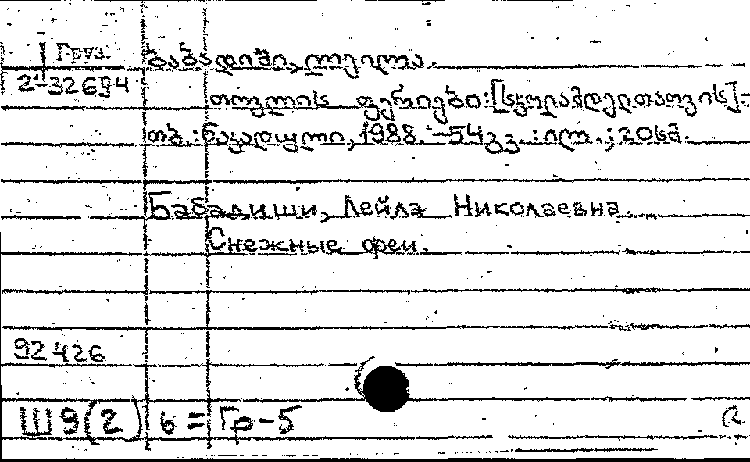 Груз.
ბაბადიში, ლეილა.
2-32694
თოვლის ფერიები: [სკოლამდელთათვის].-
თბ.: ნაკადული, 1988. -54გვ. :ილ. ; 20სმ.
Бабадиши, Лейла Николаевна.
Снежные феи.
92426
Ш9(2) 6 = Гр-5